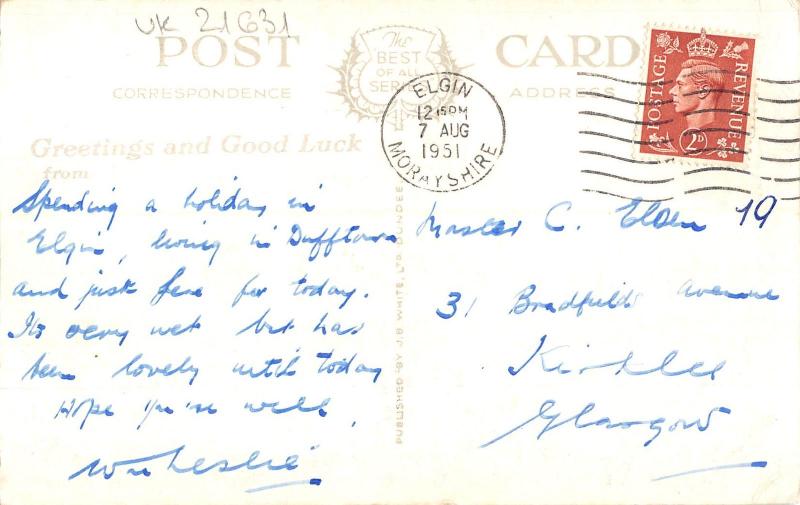 UK 21631
POST CARD
The
BEST
OF ALL
SERVICE
CORRESPONDENCE
ADDRESS
ELGIN
12 15 PM
7 AUG
1951
MORAYSHIRE
POSTAGE
REVENUE
2D
Greetings and Good Luck
from
Spending a holiday in
Elgin, living in Dufftown
and just here for today.
Its very wet but has
been lovely until today
Hope you're well.
Wm Leslie
PUBLISHED BY J.B. WHITE, LTD. DUNDEE
Master C. 19
31 Bradfields Avenue
Kirklee
Glasgow